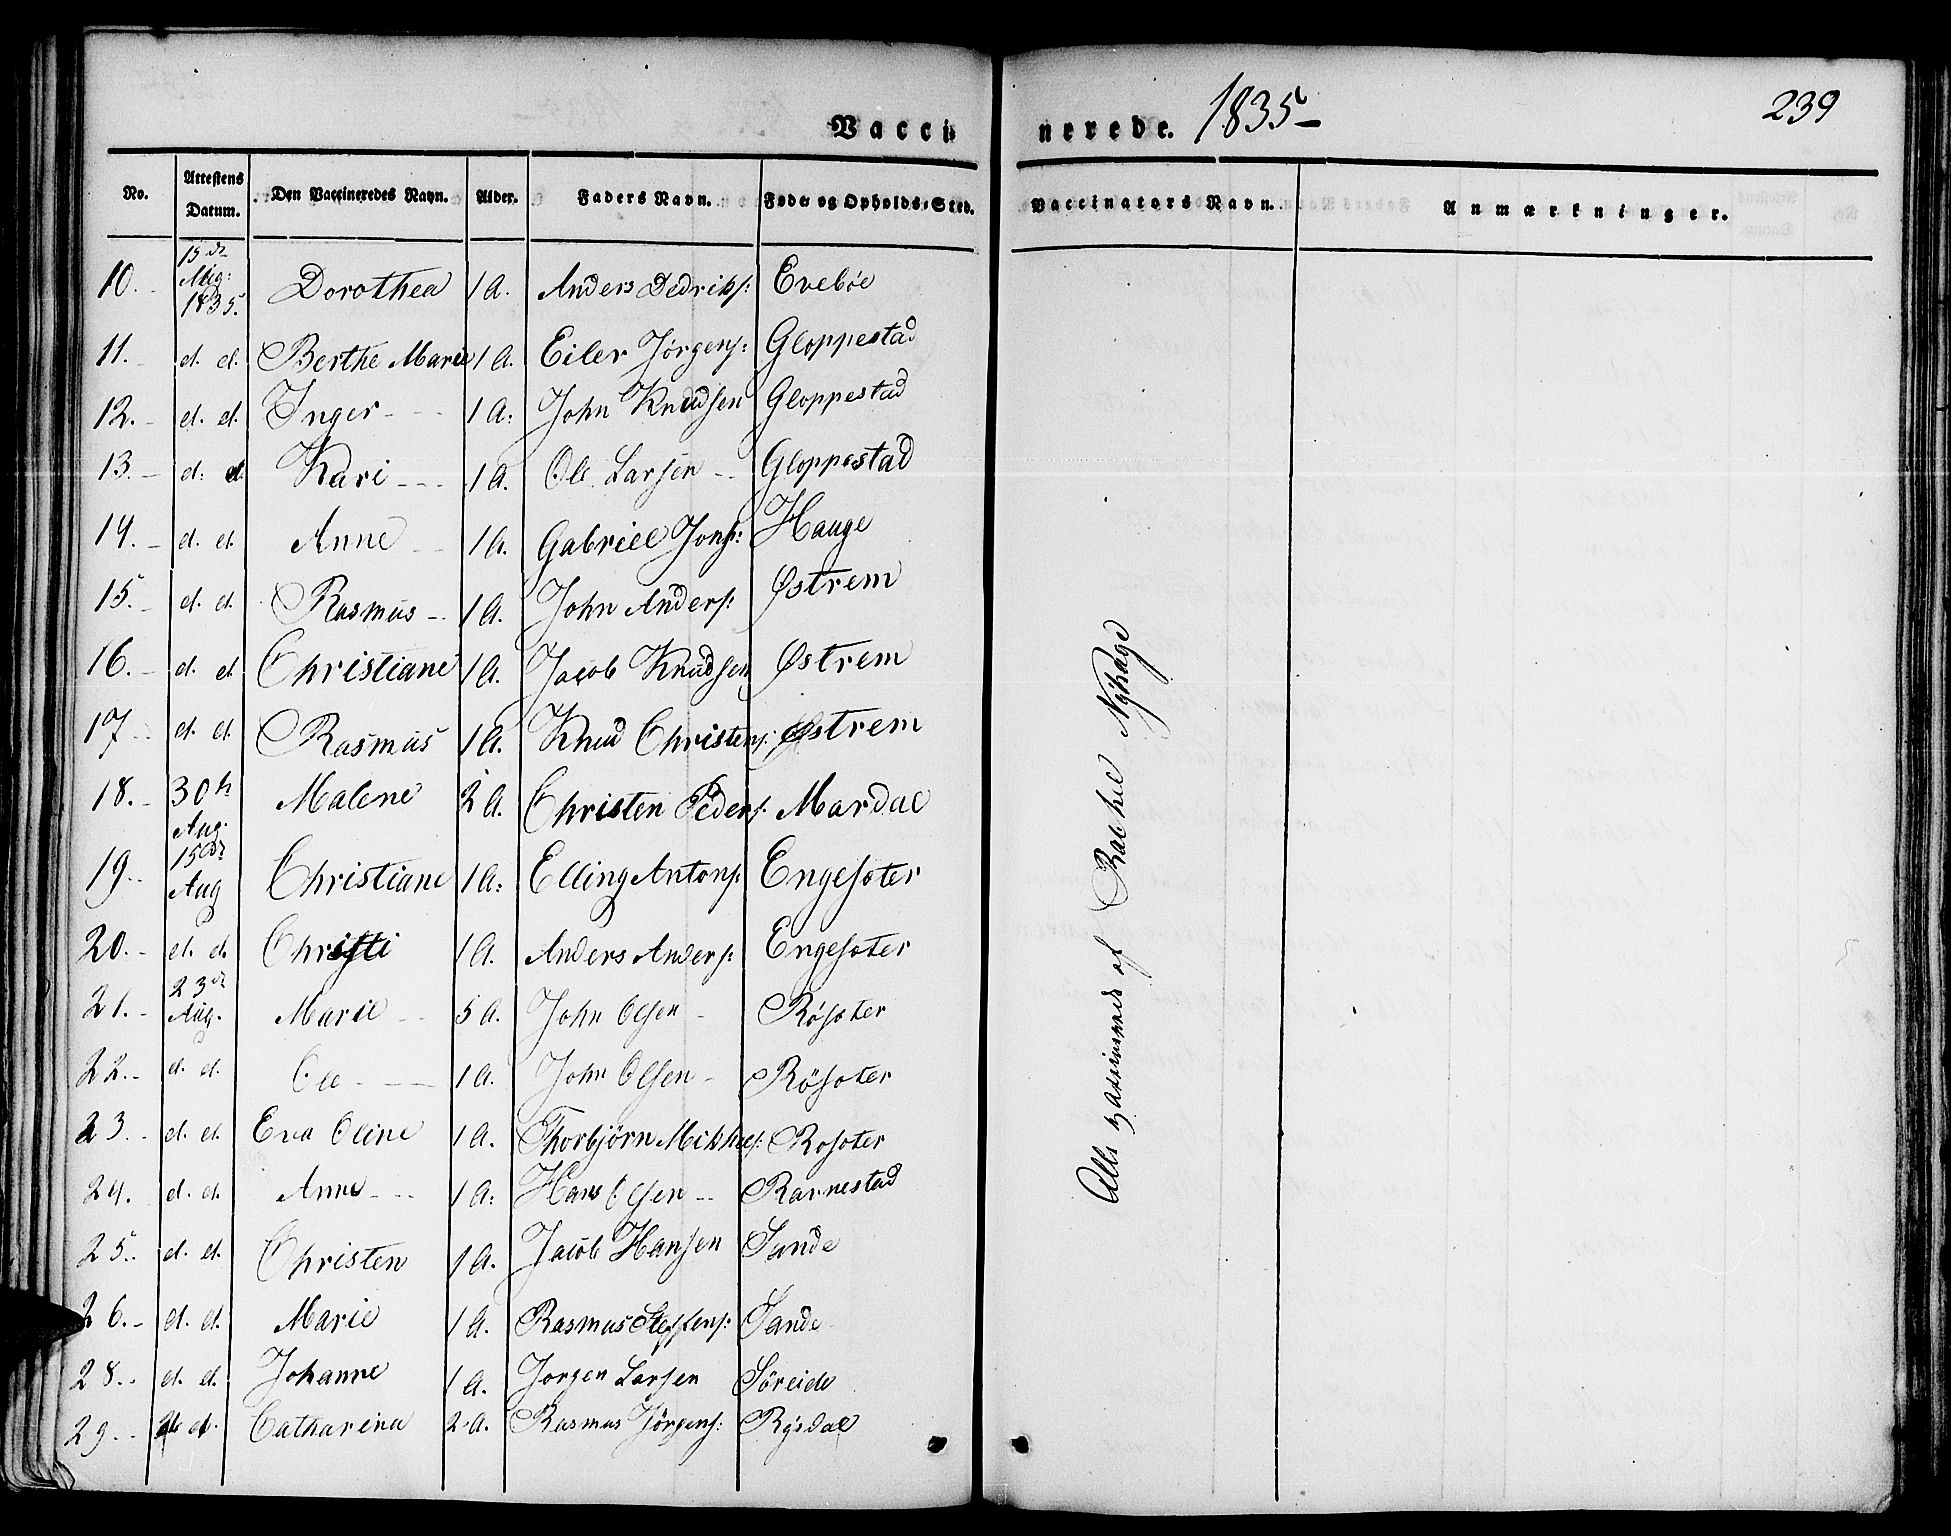 Vaccinerede. 1835 –
239
No. | Attestens Datum. | Den Vaccineredes Navn. | Alder. | Faders Navn. | Føde og Opholds-Sted. | Vaccinators Navn. | Anmærkninger.
10. - | 15de Aug: 1835. | Dorothea | 1 A. | Anders Dedriks: | Evebøe
11. - | d. d. | Berthe Marie | 1 A. | Eiler Jørgens: | Gloppestad
12. - | d. d. | Inger - - | 1 A: | John Knudsen | Gloppestad
13. - | d: d. | Kari - - - | 1 A. | Ole Larsen - - | Gloppestad
14. - | d. d. | Anne - - | 1 A. | Gabriel Jons: | Hauge
15. - | d. d. | Rasmus - - | 1 A. | John Anders: | Østrem
16. - | d. d. | Christiane | 1 A. | Jacob Knudsen | Østrem
17 - - | d. d. | Rasmus | 1 A. | Knud Christens: | Østrem
18. - | 30te Aug. | Malene | 2 A. | Christen Peders: | Mardal
19. - | 15de Aug | Christiane | 1 A: | Elling Antons: | Engesæter
20. - | d. d. | Christi | 1 A. | Anders Anders: | Engesæter
21. - | 23de Aug. | Marie - - | 5 A. | John Olsen - | Røsæter
22. - | d. d. | Ole - - - | 1 A. | John Olsen - | Røsæter
23. - | d. d. | Eva Oline | 1 A. | Thorbjörn Mikkels: | Rosæter
24. | d. d. | Anne - - - | 1 A: | Hans Olsen - - | Ravnestad
25. - | d. d. | Christen | 1 A. | Jacob Hansen | Sande
26. - | d. d. | Marie | 1 A. | Rasmus Steffens: | Sande
28. - | d. d. | Johanne | 1 A. | Jorgen Larsen | Søreide
29. - | d. | Catharina | 2 A. | Rasmus Jörgens: | Rysdal
Alle vaccinerede af Rachel